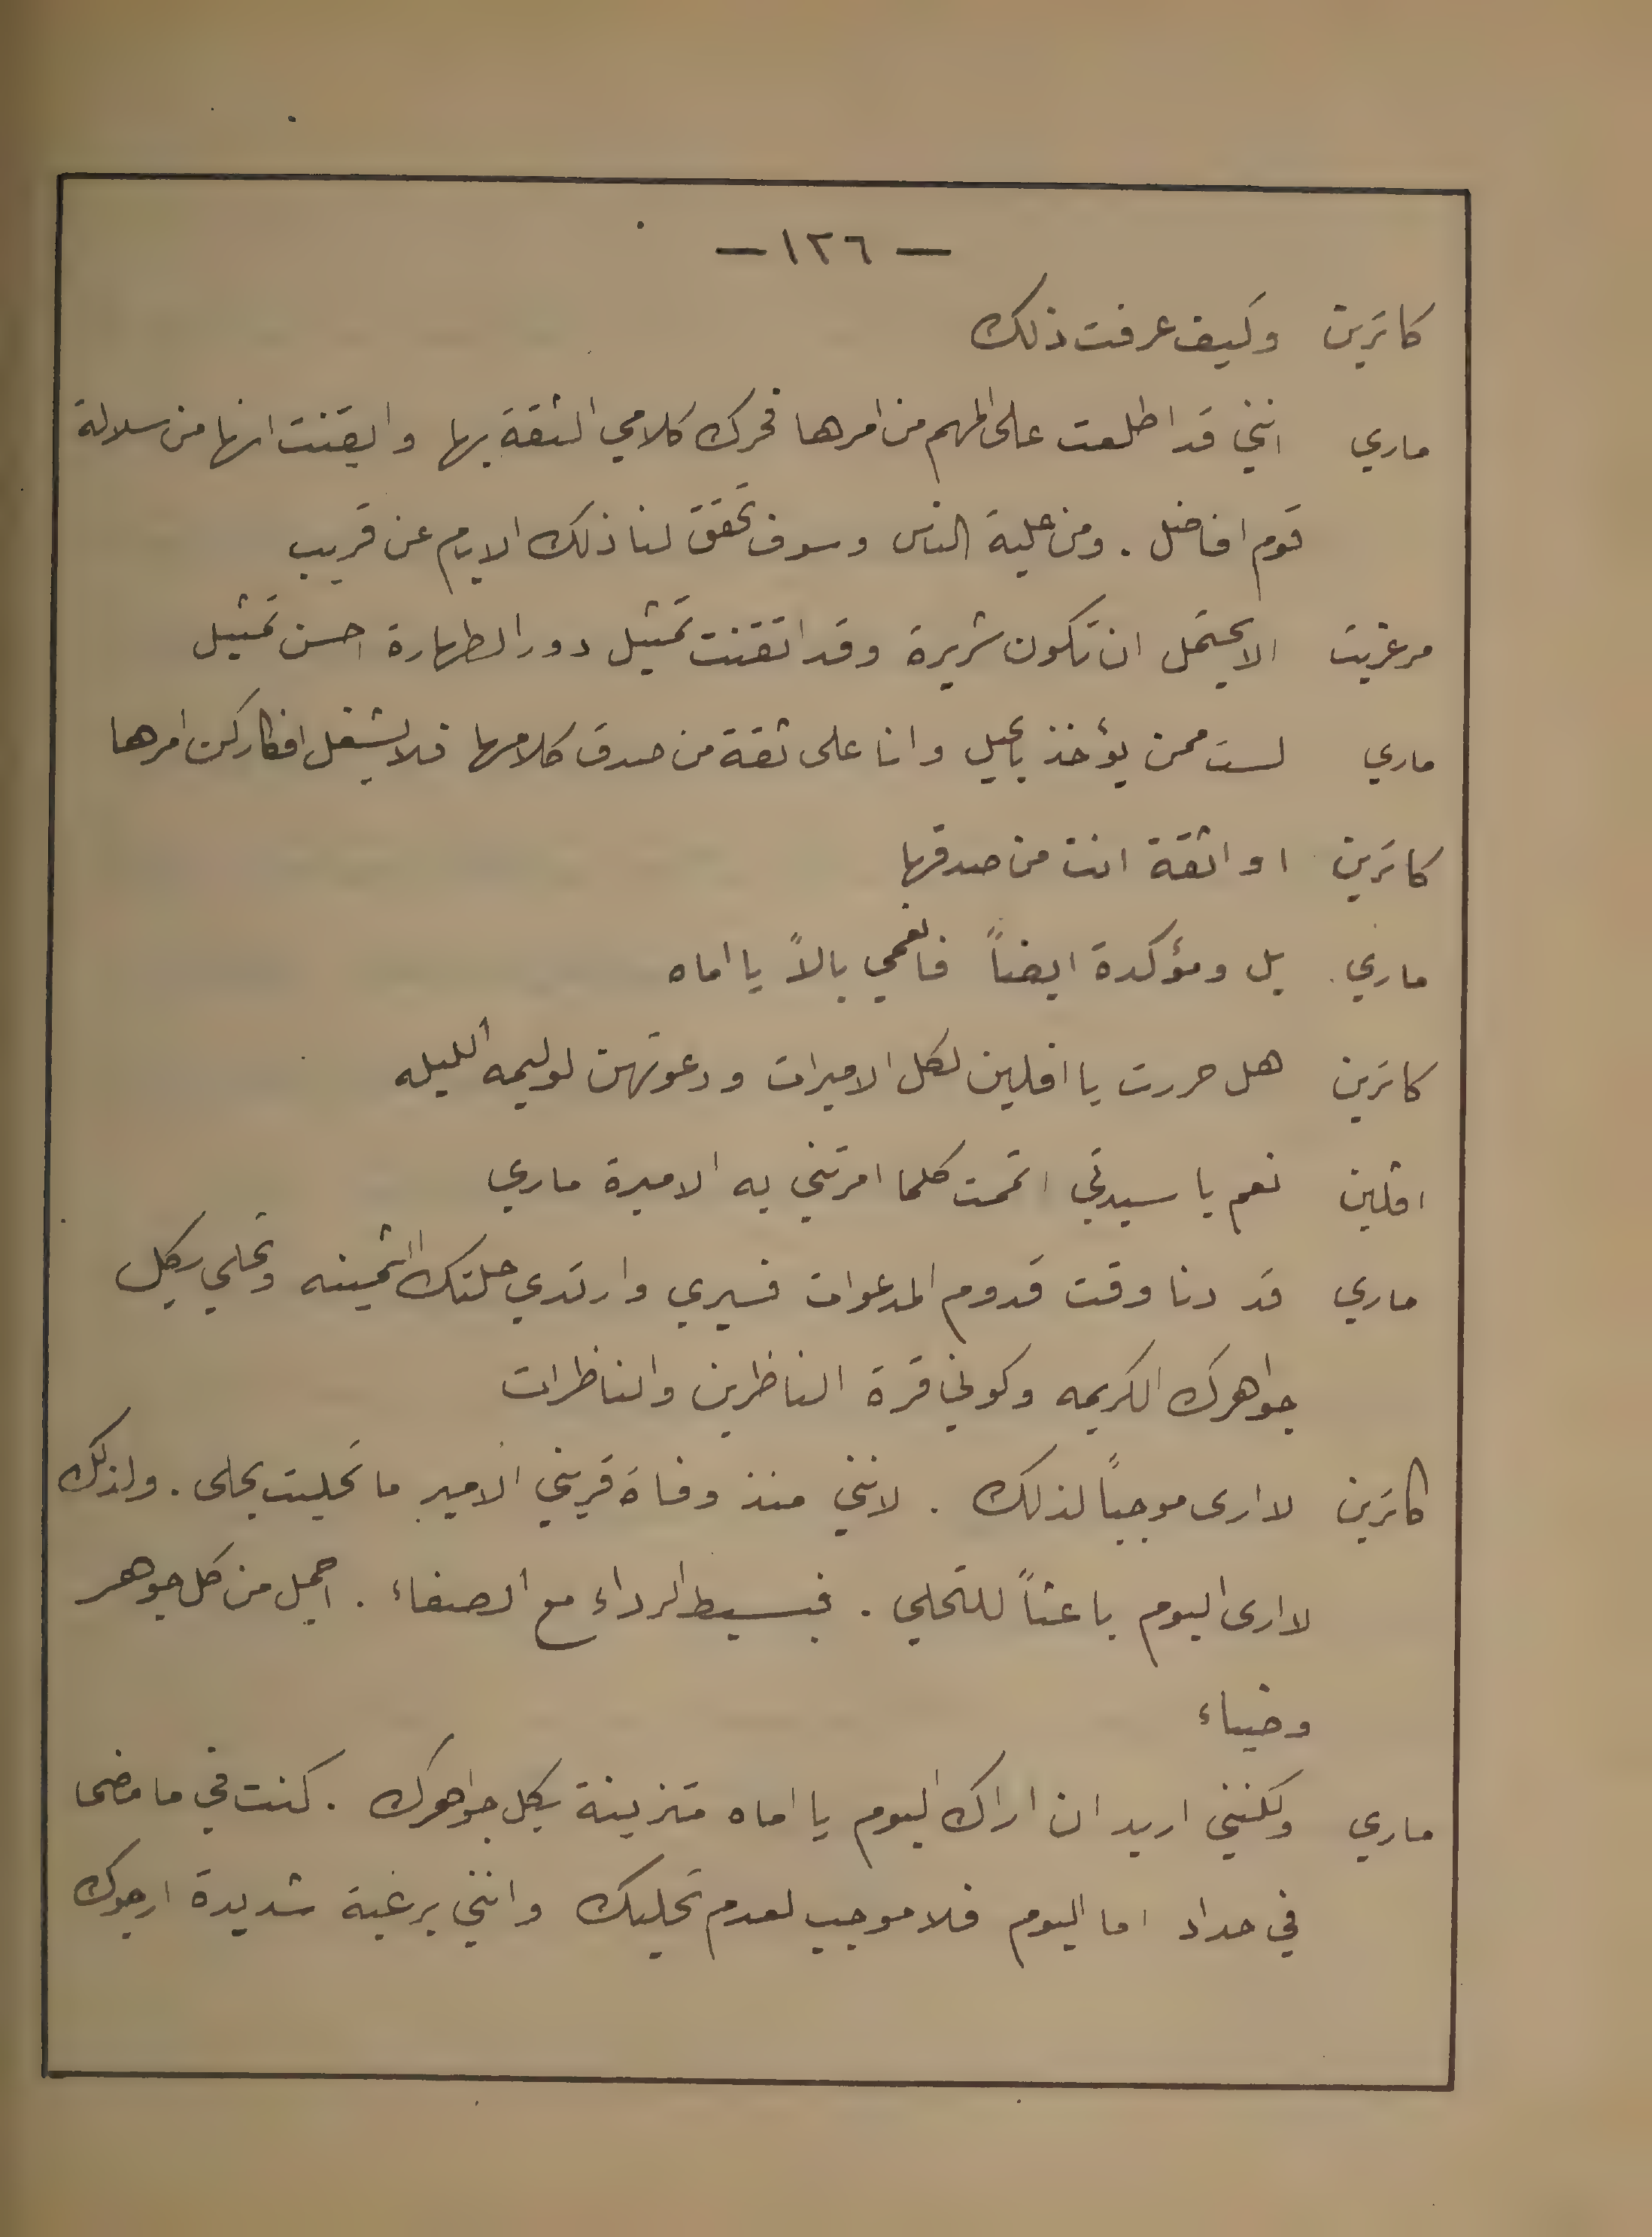 — ١٢٦ —
كاترين وكيف عرفت ذلك
ماري انني قد اطلعت على المهم من امرها فحرك كلامي الثقة بها وايقنت انها من سلالة
قوم افاضل . ومن علية الناس وسوف تحقق لنا ذلك الايام عن قريب
مرغريت الا يحتمل ان تكون شريرة وقد اتقنت تمثيل دور الطهارة احسن تمثيل
ماري لست ممن يؤخذ بالحيل وانا على ثقة من صدق كلامها فلا يشغل افكاركن امرها
كاترين اواثقة انت من صدقها
ماري بل ومؤكدة ايضاً فانعمي بالاً يا اماه
كاترين هل حررت يا افلين لكل الاميرات ودعوتهن لوليمه الليله
افلين نعم يا سيدتي اتممت كلما امرتني به الاميرة ماري
ماري قد دنا وقت قدوم المدعوات فسيري وارتدي حلتك الثمينه وتحلي بكل
جواهرك الكريمه وكوني قرة الناظرين والناظرات
كاترين لا ارى موجباً لذلك . لانني منذ وفاة قريني الامير ما تحليت بحلى . ولذلك
لا ارى اليوم باعثاً للتحلي . فبسيط الرداء مع الصفاء . اجمل من كل جوهر
وضياء
ماري ولكنني اريد ان اراك اليوم يا اماه متزينة بكل جواهرك . كنت في ما مضى
في حداد اما اليوم فلا موجب لعدم تحليك وانني برغبة شديدة ارجوك